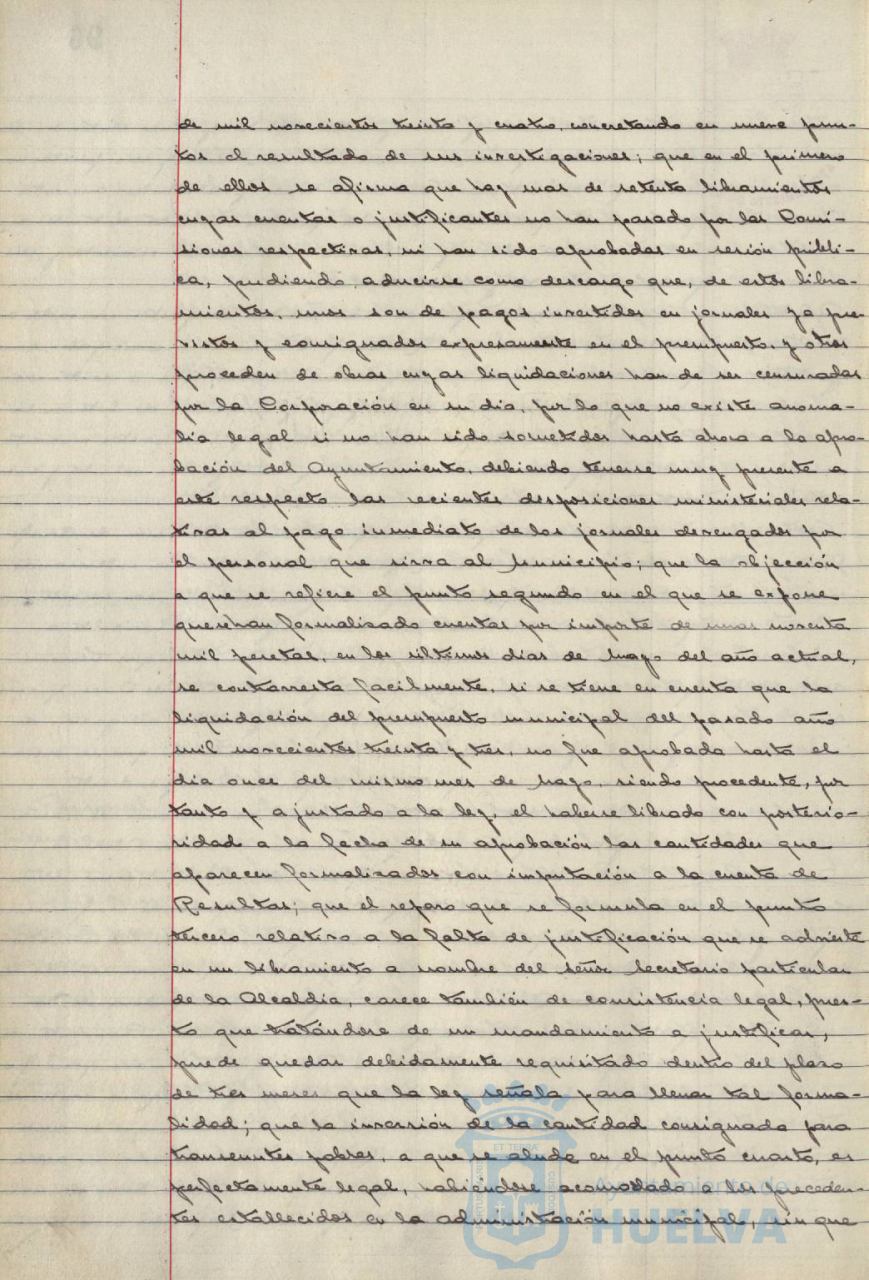 de mil novecientos treinta y cuatro, concretando en nueve pun-
tos el resultado de sus investigaciones; que en el primero
de ellos se afirma que hay mas de setenta libramientos
cuyas cuentas o justificantes no han pasado por las Comi-
siones respectivas, ni han sido aprobadas en sesión públi-
ca, pudiendo aducirse como descargo que, de estos libra-
mientos, unos son de pagos invertidos en jornales ya pre-
vistos y consignados expresamente en el presupuesto, y otros
proceden de obras cuyas liquidaciones han de ser censuradas
por la Corporación en su dia, por lo que no existe anoma-
lia legal si no han sido sometidos hasta ahora a la apro-
bación del Ayuntamiento, debiendo tenerse muy presente a
este respecto las recientes disposiciones ministeriales rela-
tivas al pago inmediato de los jornales devengados por
el personal que sirva al Municipio; que la objección
a que se refiere el punto segundo en el que se expone
que se han formalizado cuentas por importe de unas noventa
mil pesetas, en los últimos dias de Mayo del año actual,
se contrarresta facilmente, si se tiene en cuenta que la
liquidación del presupuesto municipal del pasado año
mil novecientos treinta y tres, no fue aprobada hasta el
dia once del mismo mes de Mayo, siendo procedente, por
tanto y ajustado a la ley, el haberse librado con posterio-
ridad a la fecha de su aprobación las cantidades que
aparecen formalizadas con imputación a la cuenta de
Resultas; que el reparo que se formula en el punto
tercero relativo a la falta de justificación que se advierte
en un libramiento a nombre del señor Secretario particular
de la Alcaldia, carece también de consistencia legal, pues-
to que tratándose de un mandamiento a justificar,
puede quedar debidamente requisitado dentro del plazo
de tres meses que la ley señala para llenar tal forma-
lidad; que la inversión de la cantidad consignada para
transeuntes pobres, a que se alude en el punto cuarto, es
perfectamente legal, habiéndose acomodado a los preceden-
tes establecidos en la administración municipal, sin que
Ayuntamiento de
HUELVA